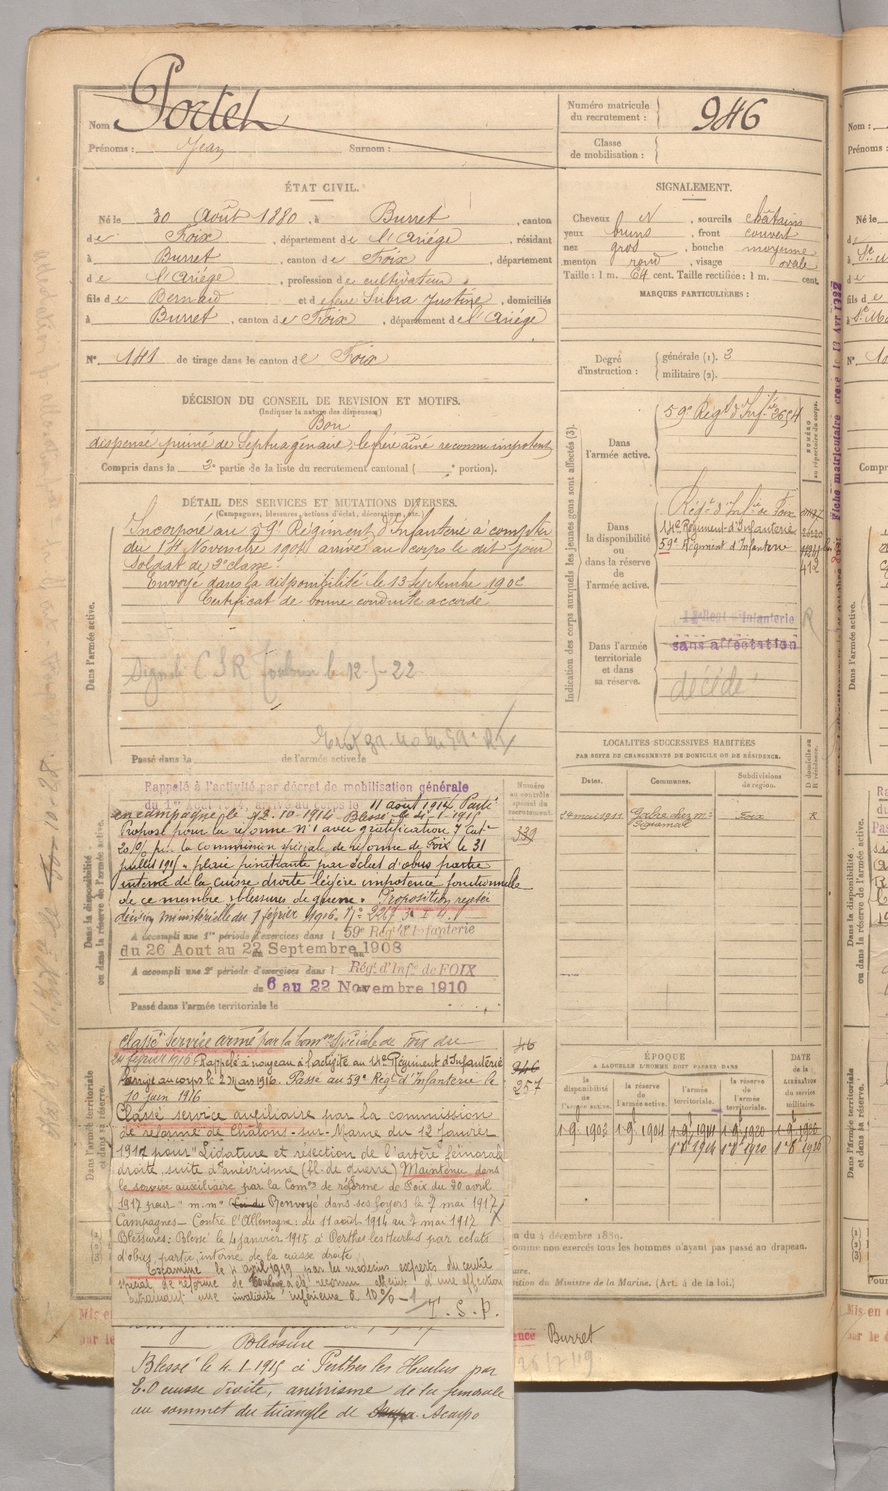 Nom Portet
Prénoms : Jean Surnom :
Numéro matricule du recrutement : 946
Classe de mobilisation :
ÉTAT CIVIL.
Né le 30 Août 1880, à Burret, canton
de Foix, département de l'Ariége, résidant
à Burret, canton de Foix, département
de l'Ariége, profession de cultivateur
fils de Bernard et de feue Subra Justine, domiciliés
à Burret, canton de Foix, département de l'Ariége
N° 141 de tirage dans le canton de Foix
SIGNALEMENT.
Cheveux N, sourcils châtains
yeux bruns, front couvert
nez gros, bouche moyenne
menton rond, visage ovale
Taille : 1 m. 64 cent. Taille rectifiée : 1 m. cent.
MARQUES PARTICULIÈRES :
Degré d'instruction : générale (1). 3
militaire (2).
DÉCISION DU CONSEIL DE REVISION ET MOTIFS.
(Indiquer la nature des dispenses)
Bon
dispensé puiné de Septuagénaire, le frère aîné reconnu impotent
Compris dans la 3e partie de la liste du recrutement cantonal ( portion).
DÉTAIL DES SERVICES ET MUTATIONS DIVERSES.
(Campagnes, blessures, actions d'éclat, décorations, etc.)
Dans l'armée active.
Incorporé au 59e Régiment d'Infanterie à compter
du 14 Novembre 1901 arrivé au corps le dit jour
Soldat de 2e classe.
Envoyé dans la disponibilité le 13 Septembre 1902
Certificat de bonne conduite accordé
Signalé CSR Toulouse le 12-5-22
Passé dans la de l'armée active le
Indication des corps auxquels les jeunes gens sont affectés (3).
Dans l'armée active.
59e Régt d'Infie 2654
Dans la disponibilité ou dans la réserve de l'armée active.
Régt d'Infie de Foix
14e Régiment d'Infanterie
59e Régiment d'Infanterie
412
Dans l'armée territoriale et dans sa réserve.
Infanterie
sans affectation
décédé
R
Fiche matriculaire créée le 13 Avr 1922
LOCALITÉS SUCCESSIVES HABITÉES
PAR SUITE DE CHANGEMENTS DE DOMICILE OU DE RÉSIDENCE.
Dates. Communes. Subdivisions de région. D domicile ou R résidence.
Foix R
Dans la disponibilité ou dans la réserve de l'armée active.
Numéro au contrôle spécial du recrutement.
339
Rappelé à l'activité par décret de mobilisation générale
du 1er Août 1914, arrivé au corps le 11 août 1914. Parti
en campagne le 12.10.1914 Blessé le 4.1.1915
Proposé pour la réforme n°1 avec gratification 7e Cat
20 % par la commission spéciale de réforme de Foix le 31
juillet 1915. plaie pénétrante par éclat d'obus partie
interne de la cuisse droite légère impotence fonctionnelle
de ce membre, blessures de guerre. Proposition rejetée
décision ministérielle du 7 février 1916.
A accompli une 1re période d'exercices dans l 59e Régt d'Infanterie
du 26 Aout au 22 Septembre 1908
A accompli une 2e période d'exercices dans l Régt d'Infie de FOIX
du 6 au 22 Novembre 1910
Passé dans l'armée territoriale le
Dans l'armée territoriale et dans sa réserve.
Classé service armé par la Comon spéciale de Foix du
24 février 1916 Rappelé à nouveau à l'activité au 14e Régiment d'Infanterie
Arrivé au corps le 2 Mars 1916. Passé au 59e Régt d'Infanterie le
10 juin 1916
46
946
257
Classé service auxiliaire par la commission
de réforme de Châlons-sur-Marne du 12 Janvier
1917 pour "Ligature et résection de l'artère fémorale
droite, suite d'anévrisme (bl. de guerre) Maintenu dans
le service auxiliaire par la Comon de réforme de Foix du 20 avril
1917 pour "m.m" Renvoyé dans ses foyers le 7 mai 1917
Campagnes - Contre l'Allemagne : du 11 août 1914 au 7 mai 1917
Blessures : Blessé le 4 janvier 1915 à Perthes les Hurlus par éclats
d'obus, partie interne de la cuisse droite
Examiné le 4 avril 1919 par les médecins experts du centre
spécial de réforme de Toulouse a été reconnu atteint d'une affection
entraînant une invalidité inférieure à 10 %
T. S. P.
ÉPOQUE
A LAQUELLE L'HOMME DOIT PASSER DANS
la disponibilité de l'armée active. la réserve de l'armée active. l'armée territoriale. la réserve de l'armée territoriale. DATE de la LIBÉRATION du service militaire.
1-9-1902 1-9-1904 1-9-1914 1-9-1920 1-9-1926
du 4 décembre 1889.
comme non exercés tous les hommes n'ayant pas passé au drapeau.
sition du Ministre de la Marine. (Art. 4 de la loi.)
Burret
Blessure
Blessé le 4.1.1915 à Perthes les Hurlus par
E.O cuisse droite, anévrisme de la fémorale
au sommet du triangle de Scarpa